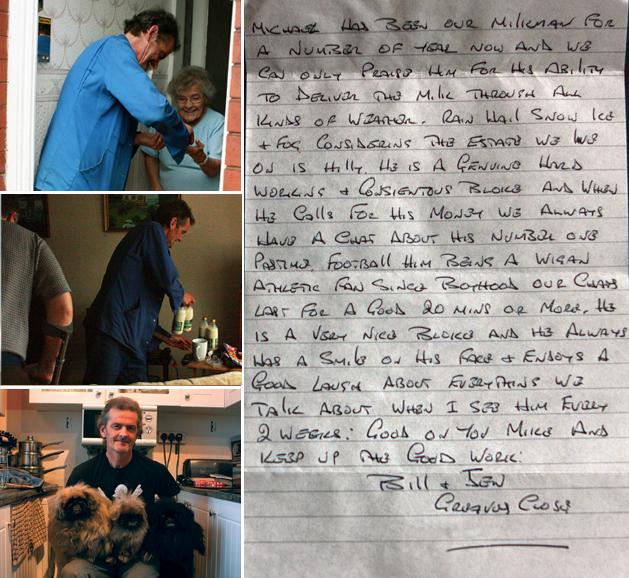 MICHAEL HAS BEEN OUR MILKMAN FOR
A NUMBER OF YEAR NOW AND WE
CAN ONLY PRAISE HIM FOR HIS ABILITY
TO DELIVER THE MILK THROUGH ALL
KINDS OF WEATHER. RAIN HAIL SNOW ICE
+ FOG CONSIDERING THE ESTATE WE LIVE
ON IS HILLY. HE IS A GENUINE HARD
WORKING + CONSIENTOUS BLOKE AND WHEN
HE CALLS FOR HIS MONEY WE ALWAYS
HAVE A CHAT ABOUT HIS NUMBER ONE
PASTIME. FOOTBALL HIM BEING A WIGAN
ATHLETIC FAN SINCE BOYHOOD OUR CHATS
LAST FOR A GOOD 20 MINS OR MORE. HE
IS A VERY NICE BLOKE AND HE ALWAYS
HAS A SMILE ON HIS FACE + ENJOYS A
GOOD LAUGH ABOUT EVERYTHING WE
TALK ABOUT WHEN I SEE HIM EVERY
2 WEEKS: GOOD ON YOU MIKE AND
KEEP UP THE GOOD WORK:
BILL + JEN
CLOSE